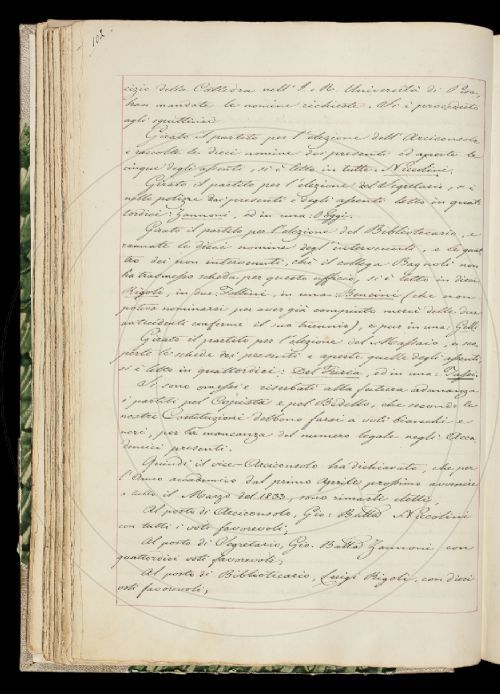 102
cizio della Cattedra nell'I. e R. Università di Pisa,
han mandate le nomine richieste. Si è proceduto
agli squittinii
Girato il partito per l'elezione dell'Arciconsolo
e raccolte le dieci nomine dei presenti ed aperte le
cinque degli assenti, si è letto in tutte: Niccolini.
Girato il partito per l'elezione del Segretario, si è
nelle polizze dei presenti e degli assenti letto in quat-
tordici: Zannoni, ed in una: Poggi.
Girato il partito per l'elezione del Bibliotecario, e
raunate le dieci nomine degl'intervenuti, e le quat-
tro dei non intervenuti, chè il collega Bagnoli non
ha trasmesso scheda per questo uffizio, si è letto in dieci
Rigoli, in due Follini, in una Bencini (che non
poteva nominarsi per aver già compiuto mercè delle due
antecedenti conferme il suo biennio), e pur in una: Gelli
Girato il partito per l'elezione del Massaio, e sco-
perte le schede dei presenti e aperte quelle degli assenti,
si è letto in quattordici: Del Furia, ed in una: Tassi.
Si sono omessi e riserbati alla futura adunanza
i partiti pel Copista e pel Bidello, che secondo le
nostre Costituzioni debbono farsi a voti bianchi e
neri, per la mancanza del numero legale negli Acca-
demici presenti.
Quindi il vice-Arciconsolo ha dichiarato, che per
l'Anno accademico dal primo Aprile prossimo avvenire
a tutto il Marzo del 1833, sono rimasti eletti,
Al posto di Arciconsolo, Gio: Battā Niccolini
con tutti i voti favorevoli;
Al posto di Segretario, Gio. Battā Zannoni con
quattordici voti favorevoli;
Al posto di Bibliotecario, Luigi Rigoli, con dieci
voti favorevoli;